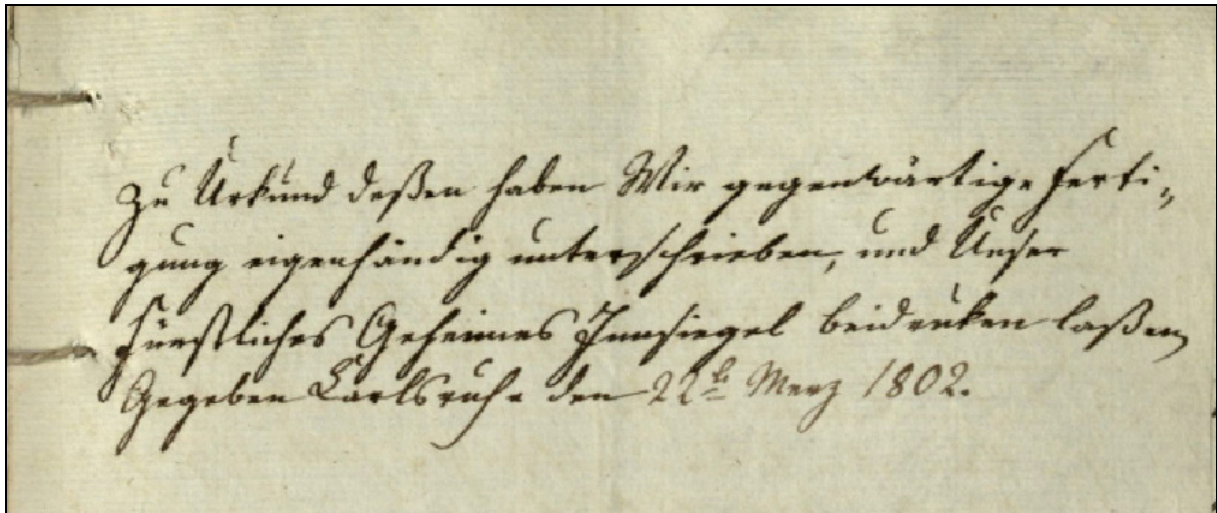 Zu Urkund deßen haben Wir gegenwärtige Ferti-
gung eigenhändig unterschrieben, und Unser
Fürstliches Geheimes Innsiegel beidruken laßen
Gegeben Carlsruhe den 22te Merz 1802.